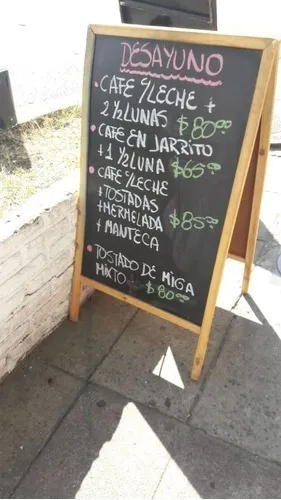 DESAYUNO
• CAFE C/LECHE +
2 ½ LUNAS $80.00
• CAFE EN JARRITO
+ 1 ½ LUNA $65.00
• CAFE C/LECHE
+ TOSTADAS
+ MERMELADA $85.00
+ MANTECA
• TOSTADO DE MIGA
MIXTO $80.00